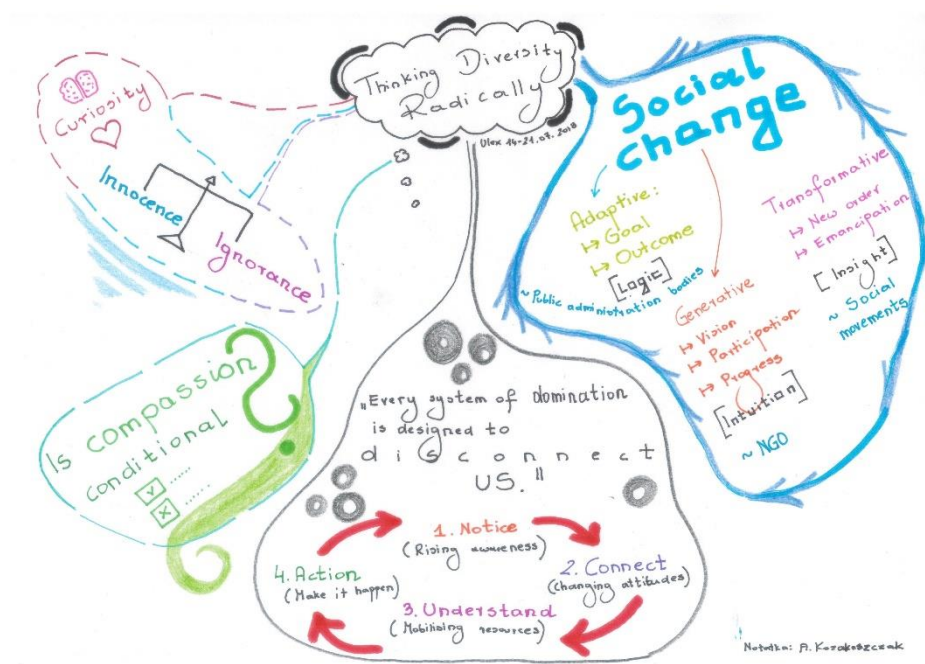 Thinking Diversity
Radically
Ulex 14-21.07.2018
Curiosity
Innocence
Ignorance
Is compassion
conditional
?
v ......
x ......
Social
change
Adaptive:
↦ Goal
↦ Outcome
[Logic]
~ Public administration bodies
Generative
↦ Vision
↦ Participation
↦ Progress
[Intuition]
~ NGO
Transformative
↦ New order
↦ Emancipation
[Insight]
~ Social
movements
„Every system of domination
is designed to
disconnect
US."
1. Notice
(Rising awareness)
2. Connect
(Changing attitudes)
3. Understand
(Mobilising resources)
4. Action
(Make it happen)
Notatka: A. Kozakoszczak